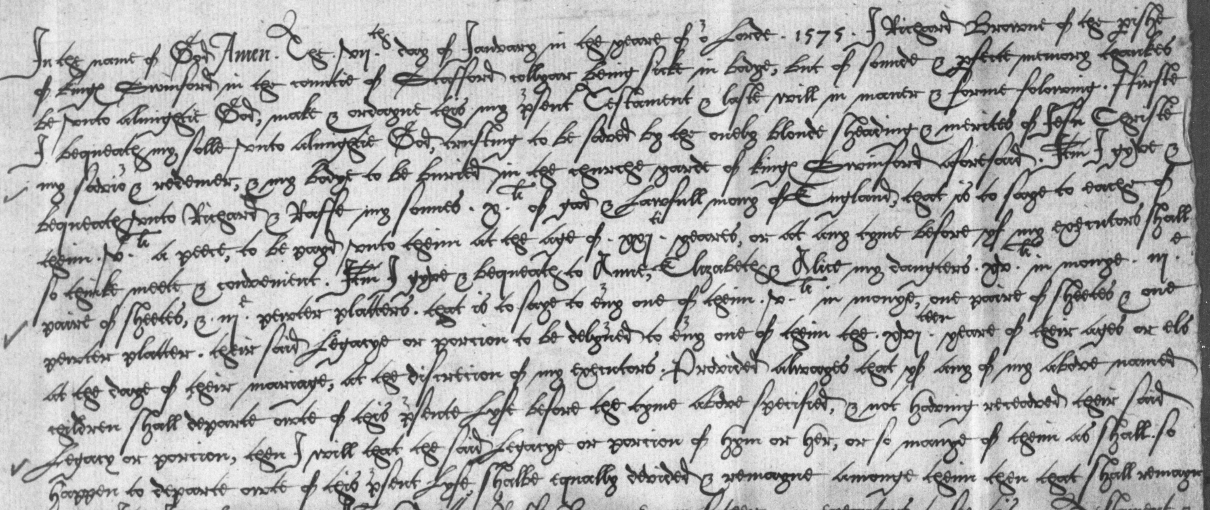 In the name of God Amen. The .vii.th day of January in the yeare of or Lorde . 1575 . I Richard Browne of the pishe
of Kings Swinford in the countie of Stafford collyar being sicke in bodye, but of sounde & pfecte memory thanckes
be unto almightie God, make & ordayne this my psent Testament & laste will in maner & forme folowing. ffirste
I bequeath my solle unto almightie God, trusting to be saved by the onely bloude sheading & merites of Jesu Christe
my savior & redemer, & my bodye to be buried in the churche yarde of Kings Swinford aforesaid. Itm I gyve &
bequeath unto Richard & Raffe my sonnes . x.li of good & lawfull mony of England, that is to saye to eache of
theim .v.li a peece, to be payd unto theim at the age of .xxi. yeares, or at any tyme before yf my executors shall
so thinke meete & convenient. Itm I gyve & bequeath to Anne, Elizabeth & Alice my daugters .xv.li in monye . iii .
paire of sheetes, & .iii. pewter platters. that is to saye to evy one of theim .v.li in monye, one paire of sheetes & one
pewter platter. their said Legacye or porcion to be delyved to evy one of theim the .xxi. yeare of their ages or els
at the daye of their mariage, at the discrecion of my executors. Provided alwayes that yf any of my above named
children shall departe owte of this psente lyfe before the tyme above specified, & not having receaved their said
Legacy or porcion, then I will that the said Legacye or porcion of hym or her, or so manye of theim as shall so
happen to departe owte of this psent lyfe, shalbe equally devided & remayne amonge theim then that shall remayn